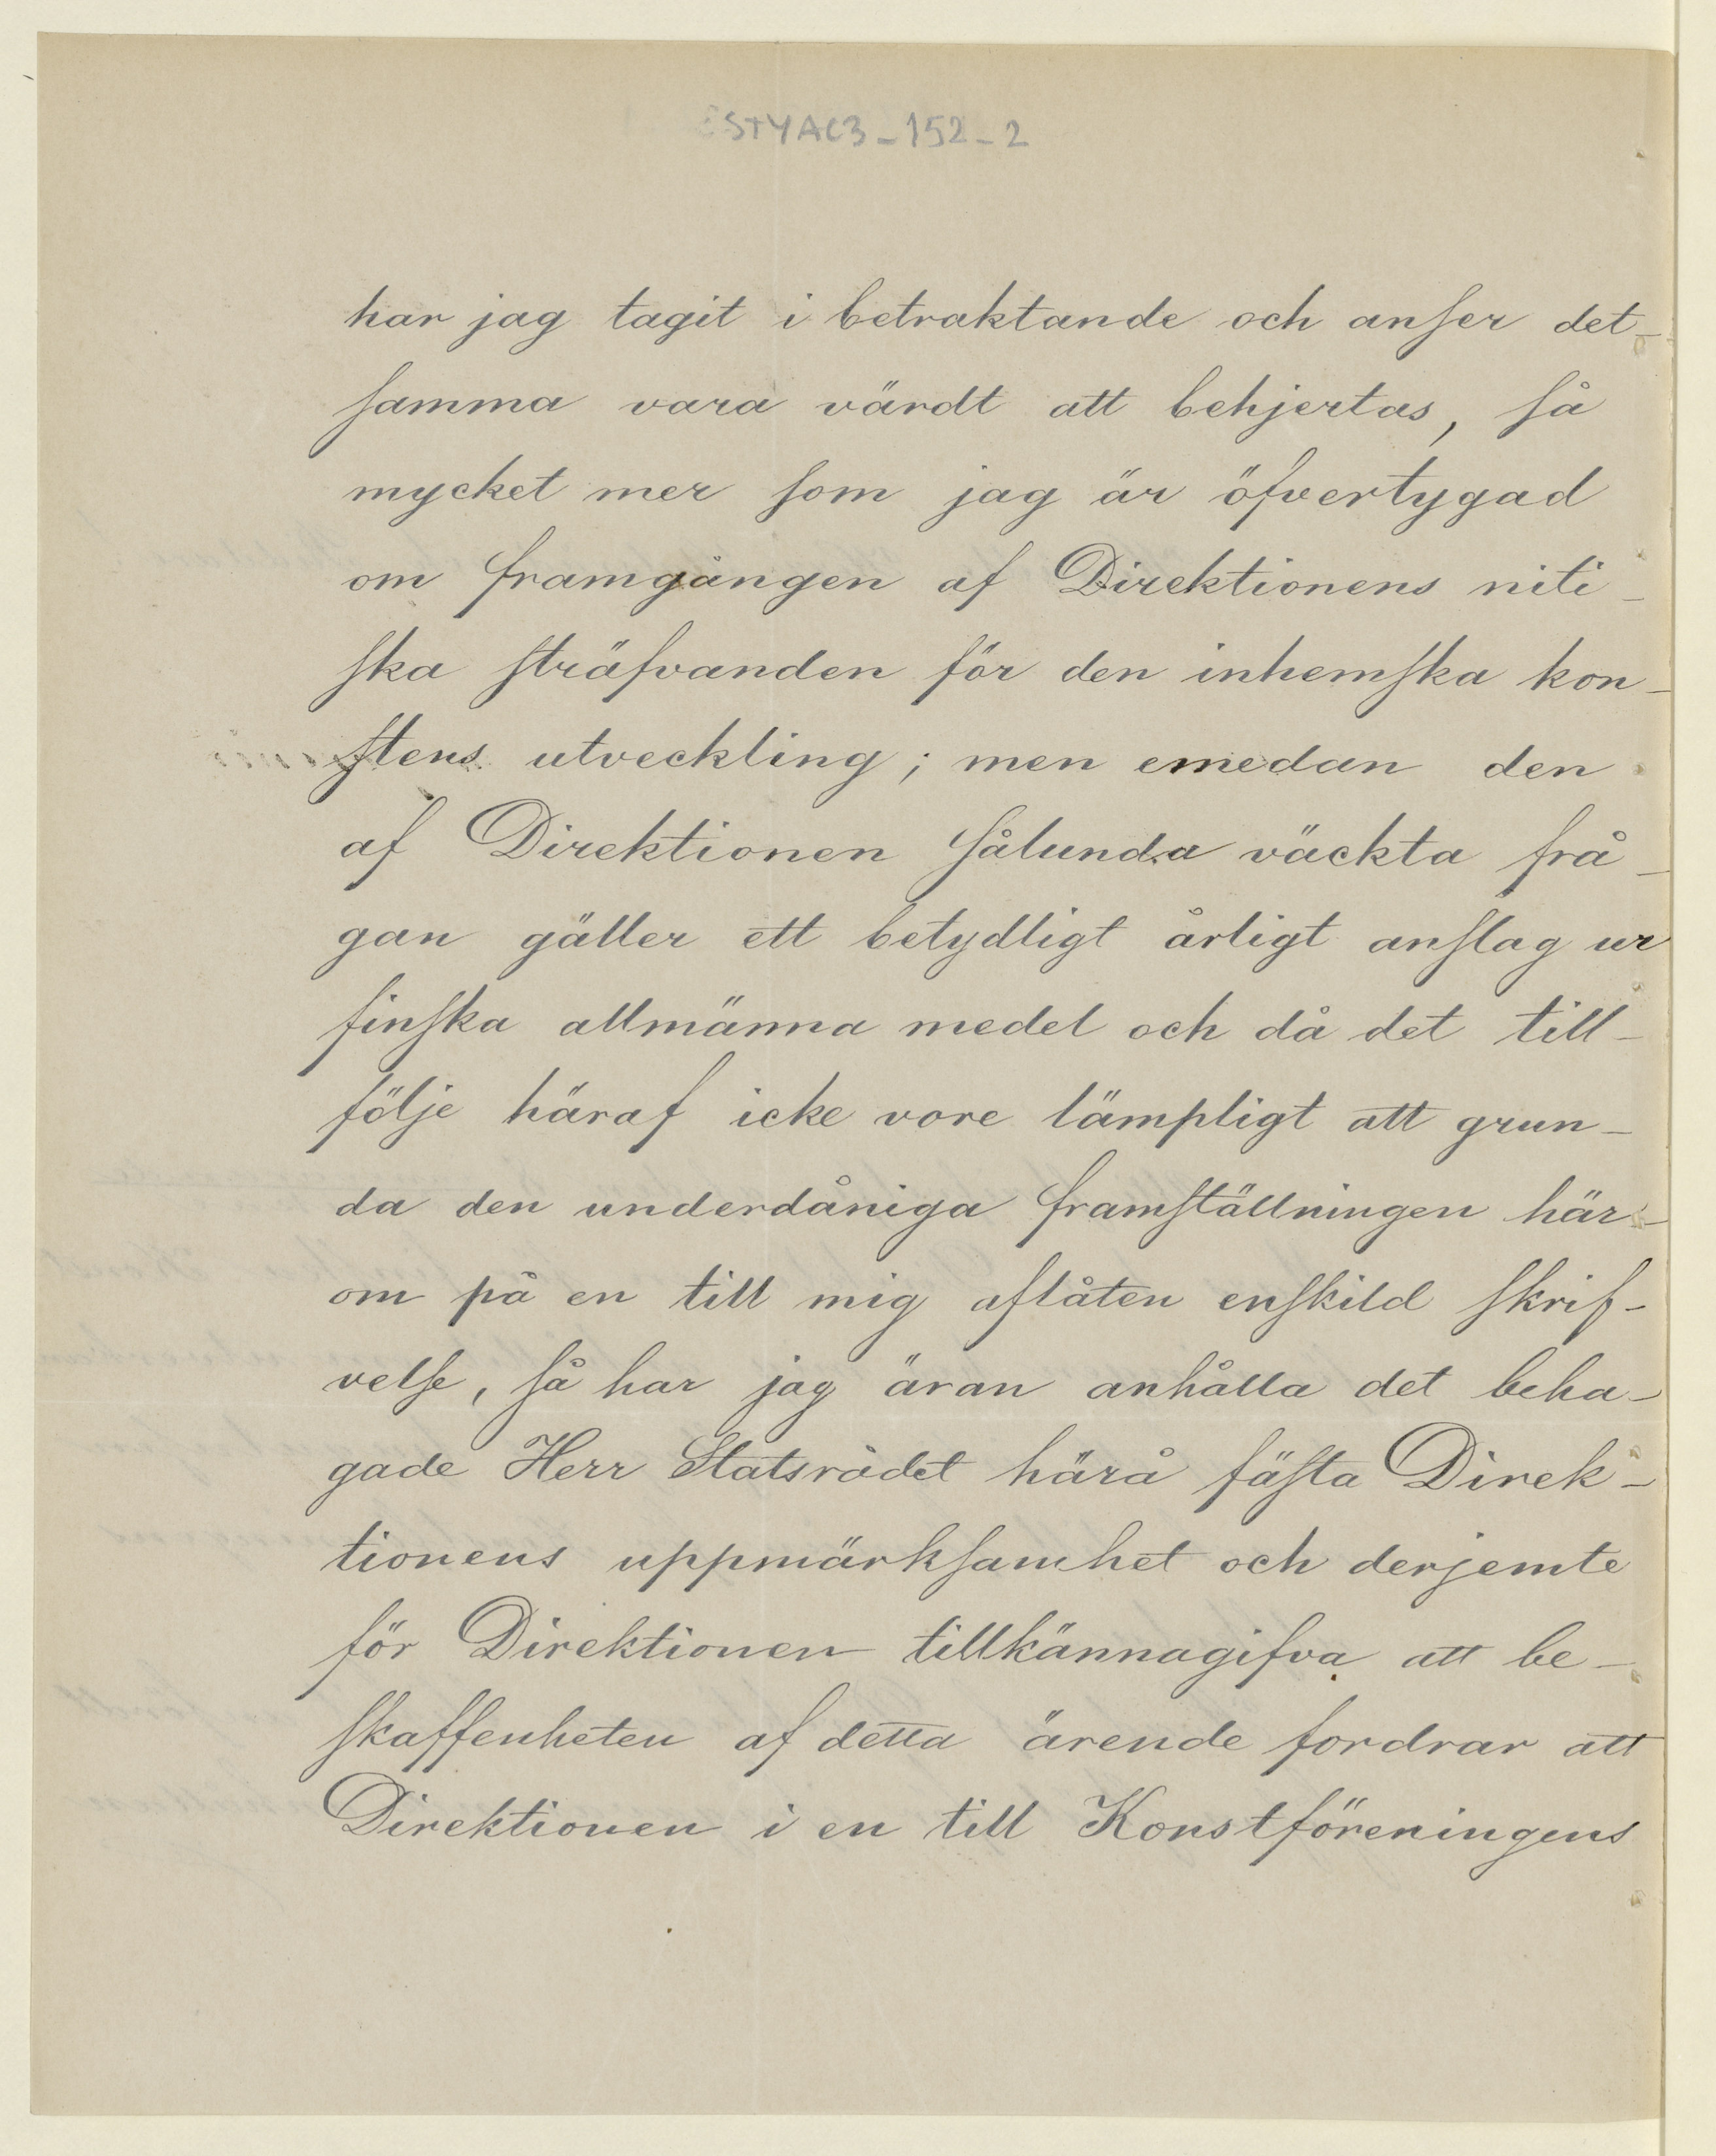 ESTYAC3-152-2
har jag tagit i betraktande och anser det-
samma vara värdt att behjertas, så
mycket mer som jag är öfvertygad
om framgången af Direktionens niti-
ska sträfvanden för den inhemska kon-
stens utveckling; men emedan den
af Direktionen sålunda väckta frå-
gan gäller ett betydligt årligt anslag ur
finska allmänna medel och då det till-
följe häraf icke vore lämpligt att grun-
da den underdåniga framställningen här-
om på en till mig aflåten enskild skrif-
velse, så har jag äran anhålla det beha-
gade Herr Statsrådet härå fästa Direk-
tionens uppmärksamhet och derjemte
för Direktionen tillkännagifva att be-
skaffenheten af detta ärende fordrar att
Direktionen i en till Konstföreningens